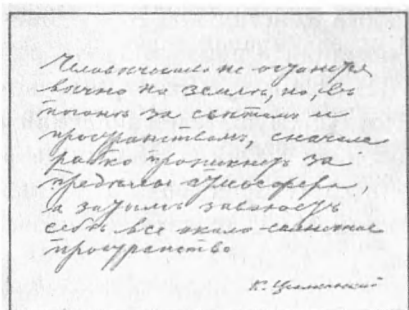 Человечество не останется
вечно на Земле, но, въ
погонѣ за свѣтомъ и
пространствомъ, сначала
робко проникнетъ за
предѣлы атмосферы,
а затѣмъ завоюетъ
себѣ все около-солнечное
пространство
К. Циолковский